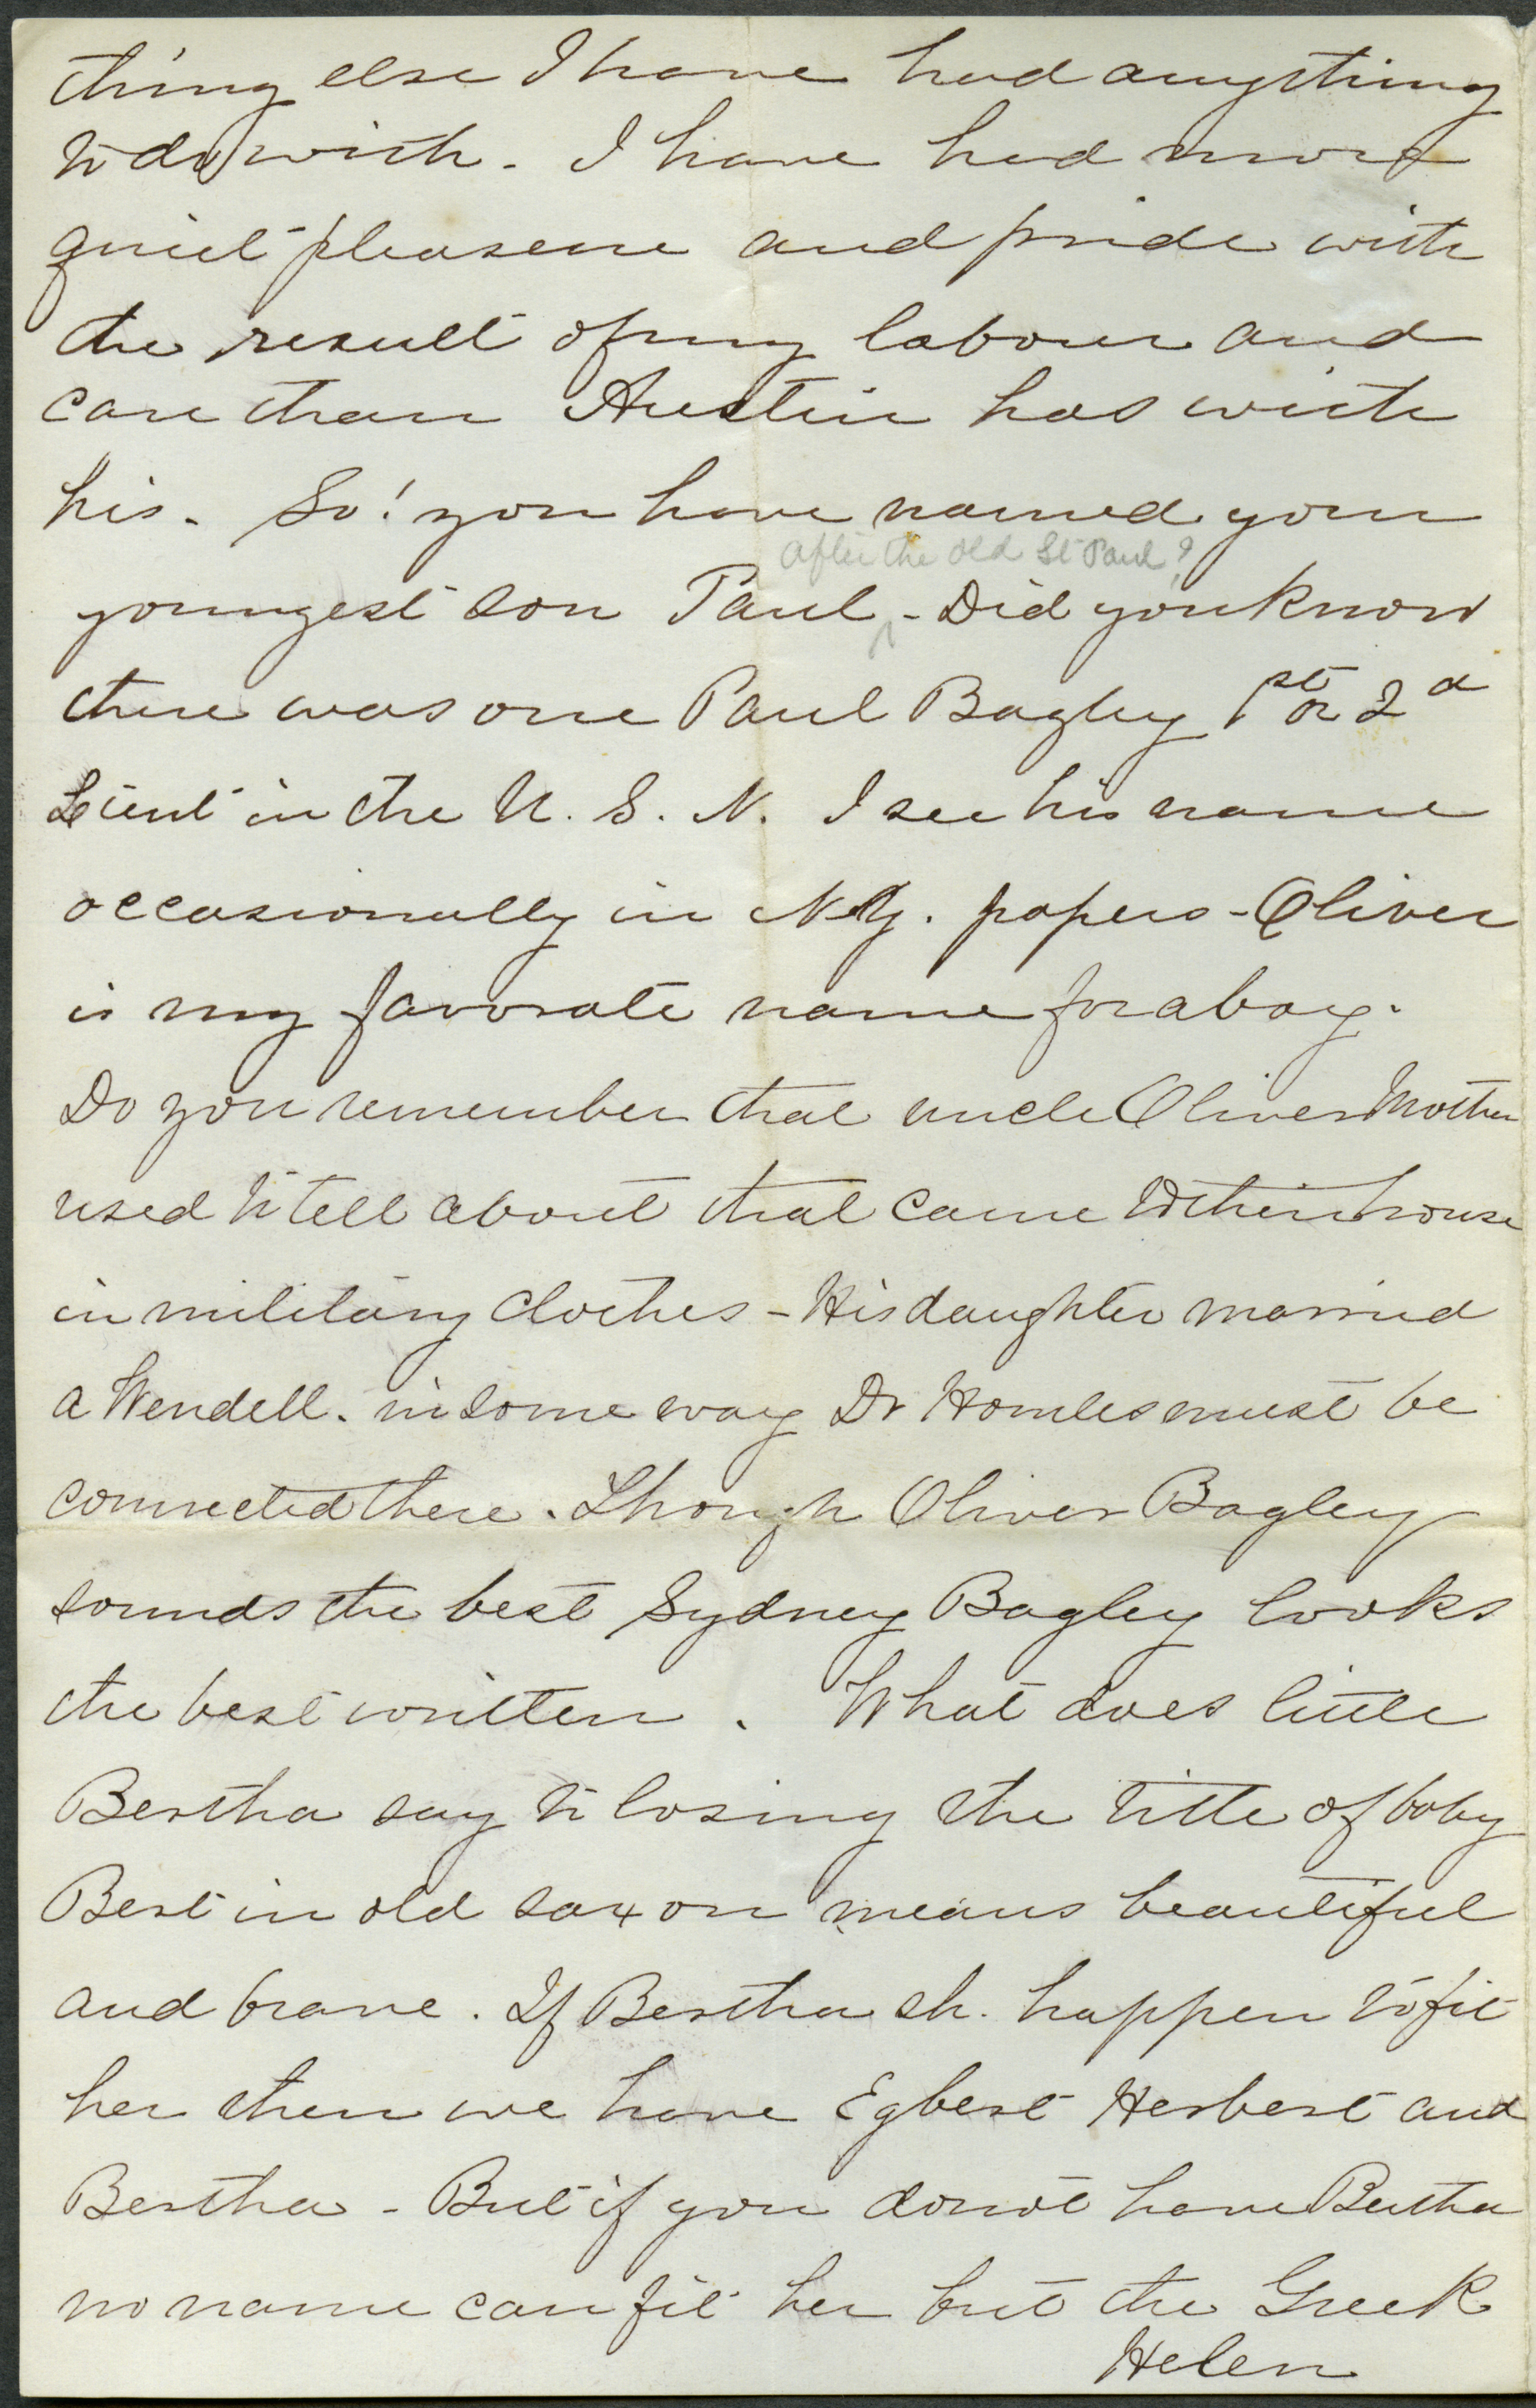 thing else I have had anything
to do with. I have had more
quiet pleasure and pride with
the result of my labour and
care than Austin has with
his. So! you have named your
after the old St Paul?
youngest son Paul - Did you know
there was one Paul Bagley 1st or 2d
Leiut in the U. S. N. I see his name
occasionally in N.Y. papers - Oliver
is my favorate name for a boy.
Do you remember that uncle Oliver Mother
used to tell about that came to their house
in military clothes - His daughter married
a Wendell. in some way Dr Homles must be
connected there. Though Oliver Bagley
sounds the best Sydney Bagley looks
the best written. What does little
Bertha say to losing the title of baby
Bert in old saxon means beautiful
and brave. If Bertha sh. happen to fit
her then we have Egbert Herbert and
Bertha - But if you do not have Bertha
no name can fit her but the Greek
Helen